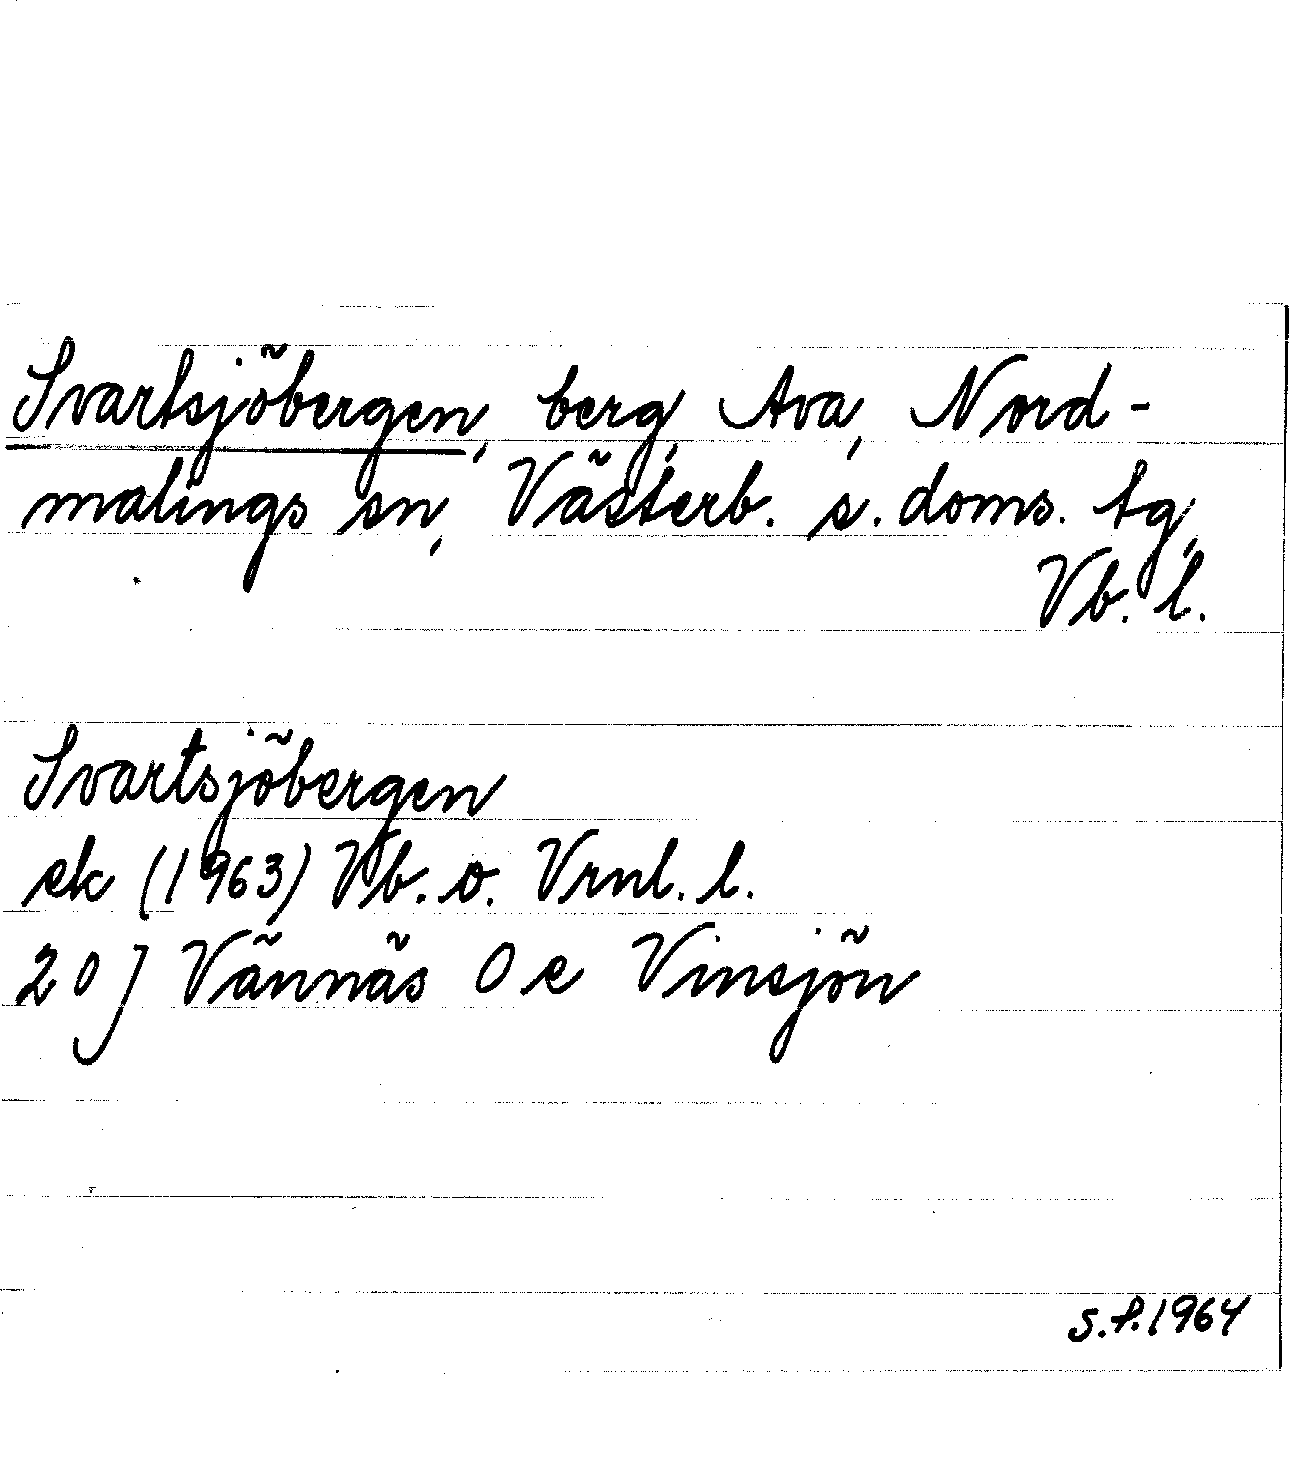 Svartsjöbergen, berg, Ava, Nord-
malings sn, Västerb. s. doms. tg,
Vb. l.
Svartsjöbergen
ek (1963) Vb. o. Vrnl. l.
20 J Vännäs 0 e Vinsjön
S.P.1964